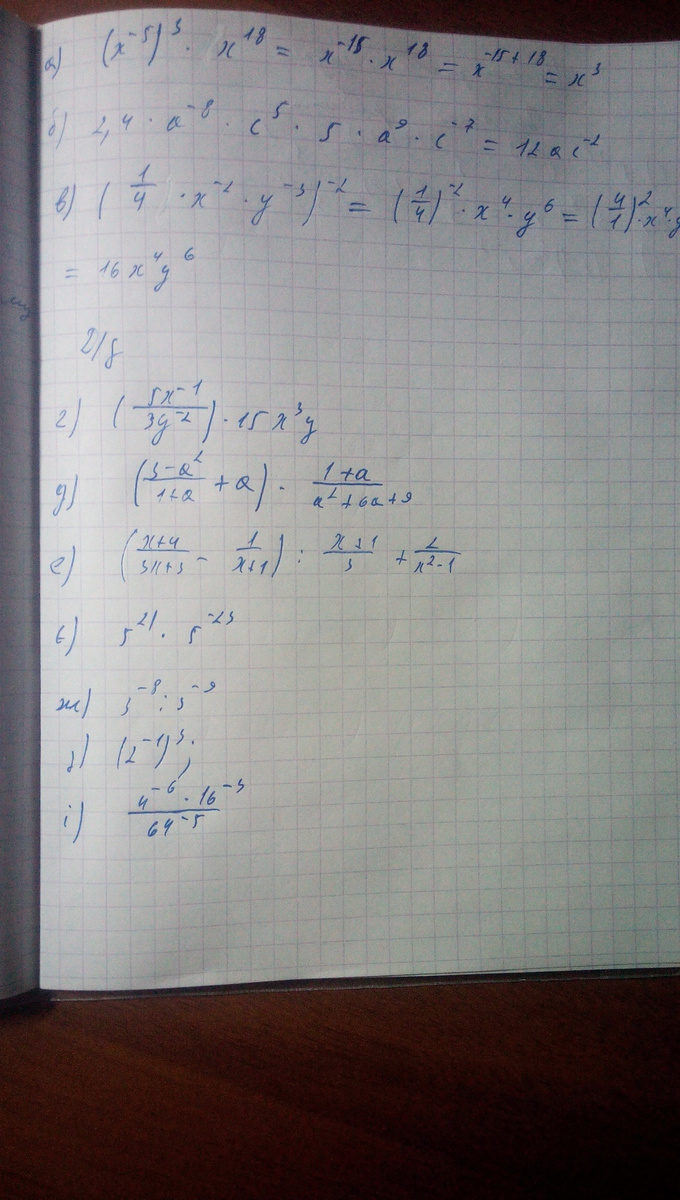 а) (x⁻⁵)³ · x¹⁸ = x⁻¹⁵ · x¹⁸ = x⁻¹⁵⁺¹⁸ = x³
б) 2,4 · a⁻⁸ · c⁵ · 5 · a⁹ · c⁻⁷ = 12ac⁻²
в) (1/4 · x⁻² · y⁻³)⁻² = (1/4)⁻² · x⁴ · y⁶ = (4/1)² · x⁴ · y
= 16x⁴y⁶
Д/з
г) (5x⁻¹/3y⁻²) · 15x³y
д) (3-a²/1+a + a) · 1+a/a²+6a+9
е) (x+4/3x+3 - 1/x+1) : x+1/3 + 2/x²-1
є) 5²¹ · 5⁻²³
ж) 3⁻⁸ : 3⁻⁹
з) (2⁻¹)³;
і) 4⁻⁶ · 16⁻³/64⁻⁵